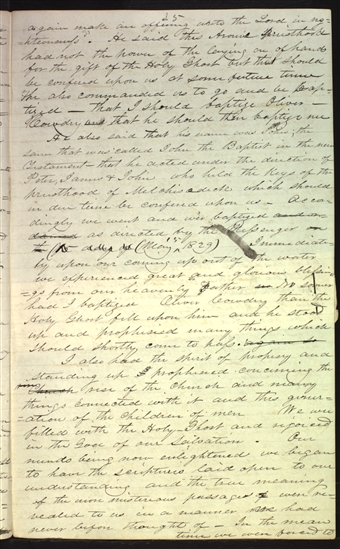 again make an offering unto the Lord in rig-
hteousness". He said this Aronic Priesthood
had not the power of the laying on of hands
for the gift of the Holy Ghost but that should
be confered upon us at some future time
He also commanded us to go and be bap-
tized — that I should baptize Oliver
Cowdry and that he should then baptize me
He also said that his name was John, the
same that was called John the Baptist in the new
Testament — that he acted under the direction of
Peter, James & John who held the keys of the
priesthood of Melchisadeck which should
in due time be confered upon us — Accor-
dingly we went and were baptized and or-
dained as directed by the Messenger on
(May 15 1829) Immediate-
ly upon our coming up out of the water
we experienced great and glorious blessin-
gs from our heavenly Father No sooner
had I baptized Oliver Cowdry than the
Holy Ghost fell upon him and he stood
up and prophesied many things which
should shortly come to pass
I also had the spirit of prophecy and
standing up I prophesied concerning the
rise of the Church and many
things connected with it and this gener-
ation of the children of men We were
filled with the Holy-Ghost and rejoiced
in the God of our Salvation. Our
minds being now enlightened we began
to have the scriptures laid open to our
understanding and the true meaning
of the more misterious passages were re-
vealed to us in a manner had
never before thought of — In the mean
time we were forced to